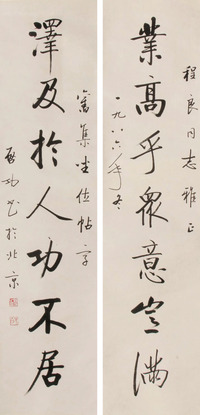 程良同志雅正
業高乎眾意豈滿
一九八六年冬
舊集坐位帖字
澤及於人功不居
啟功書於北京